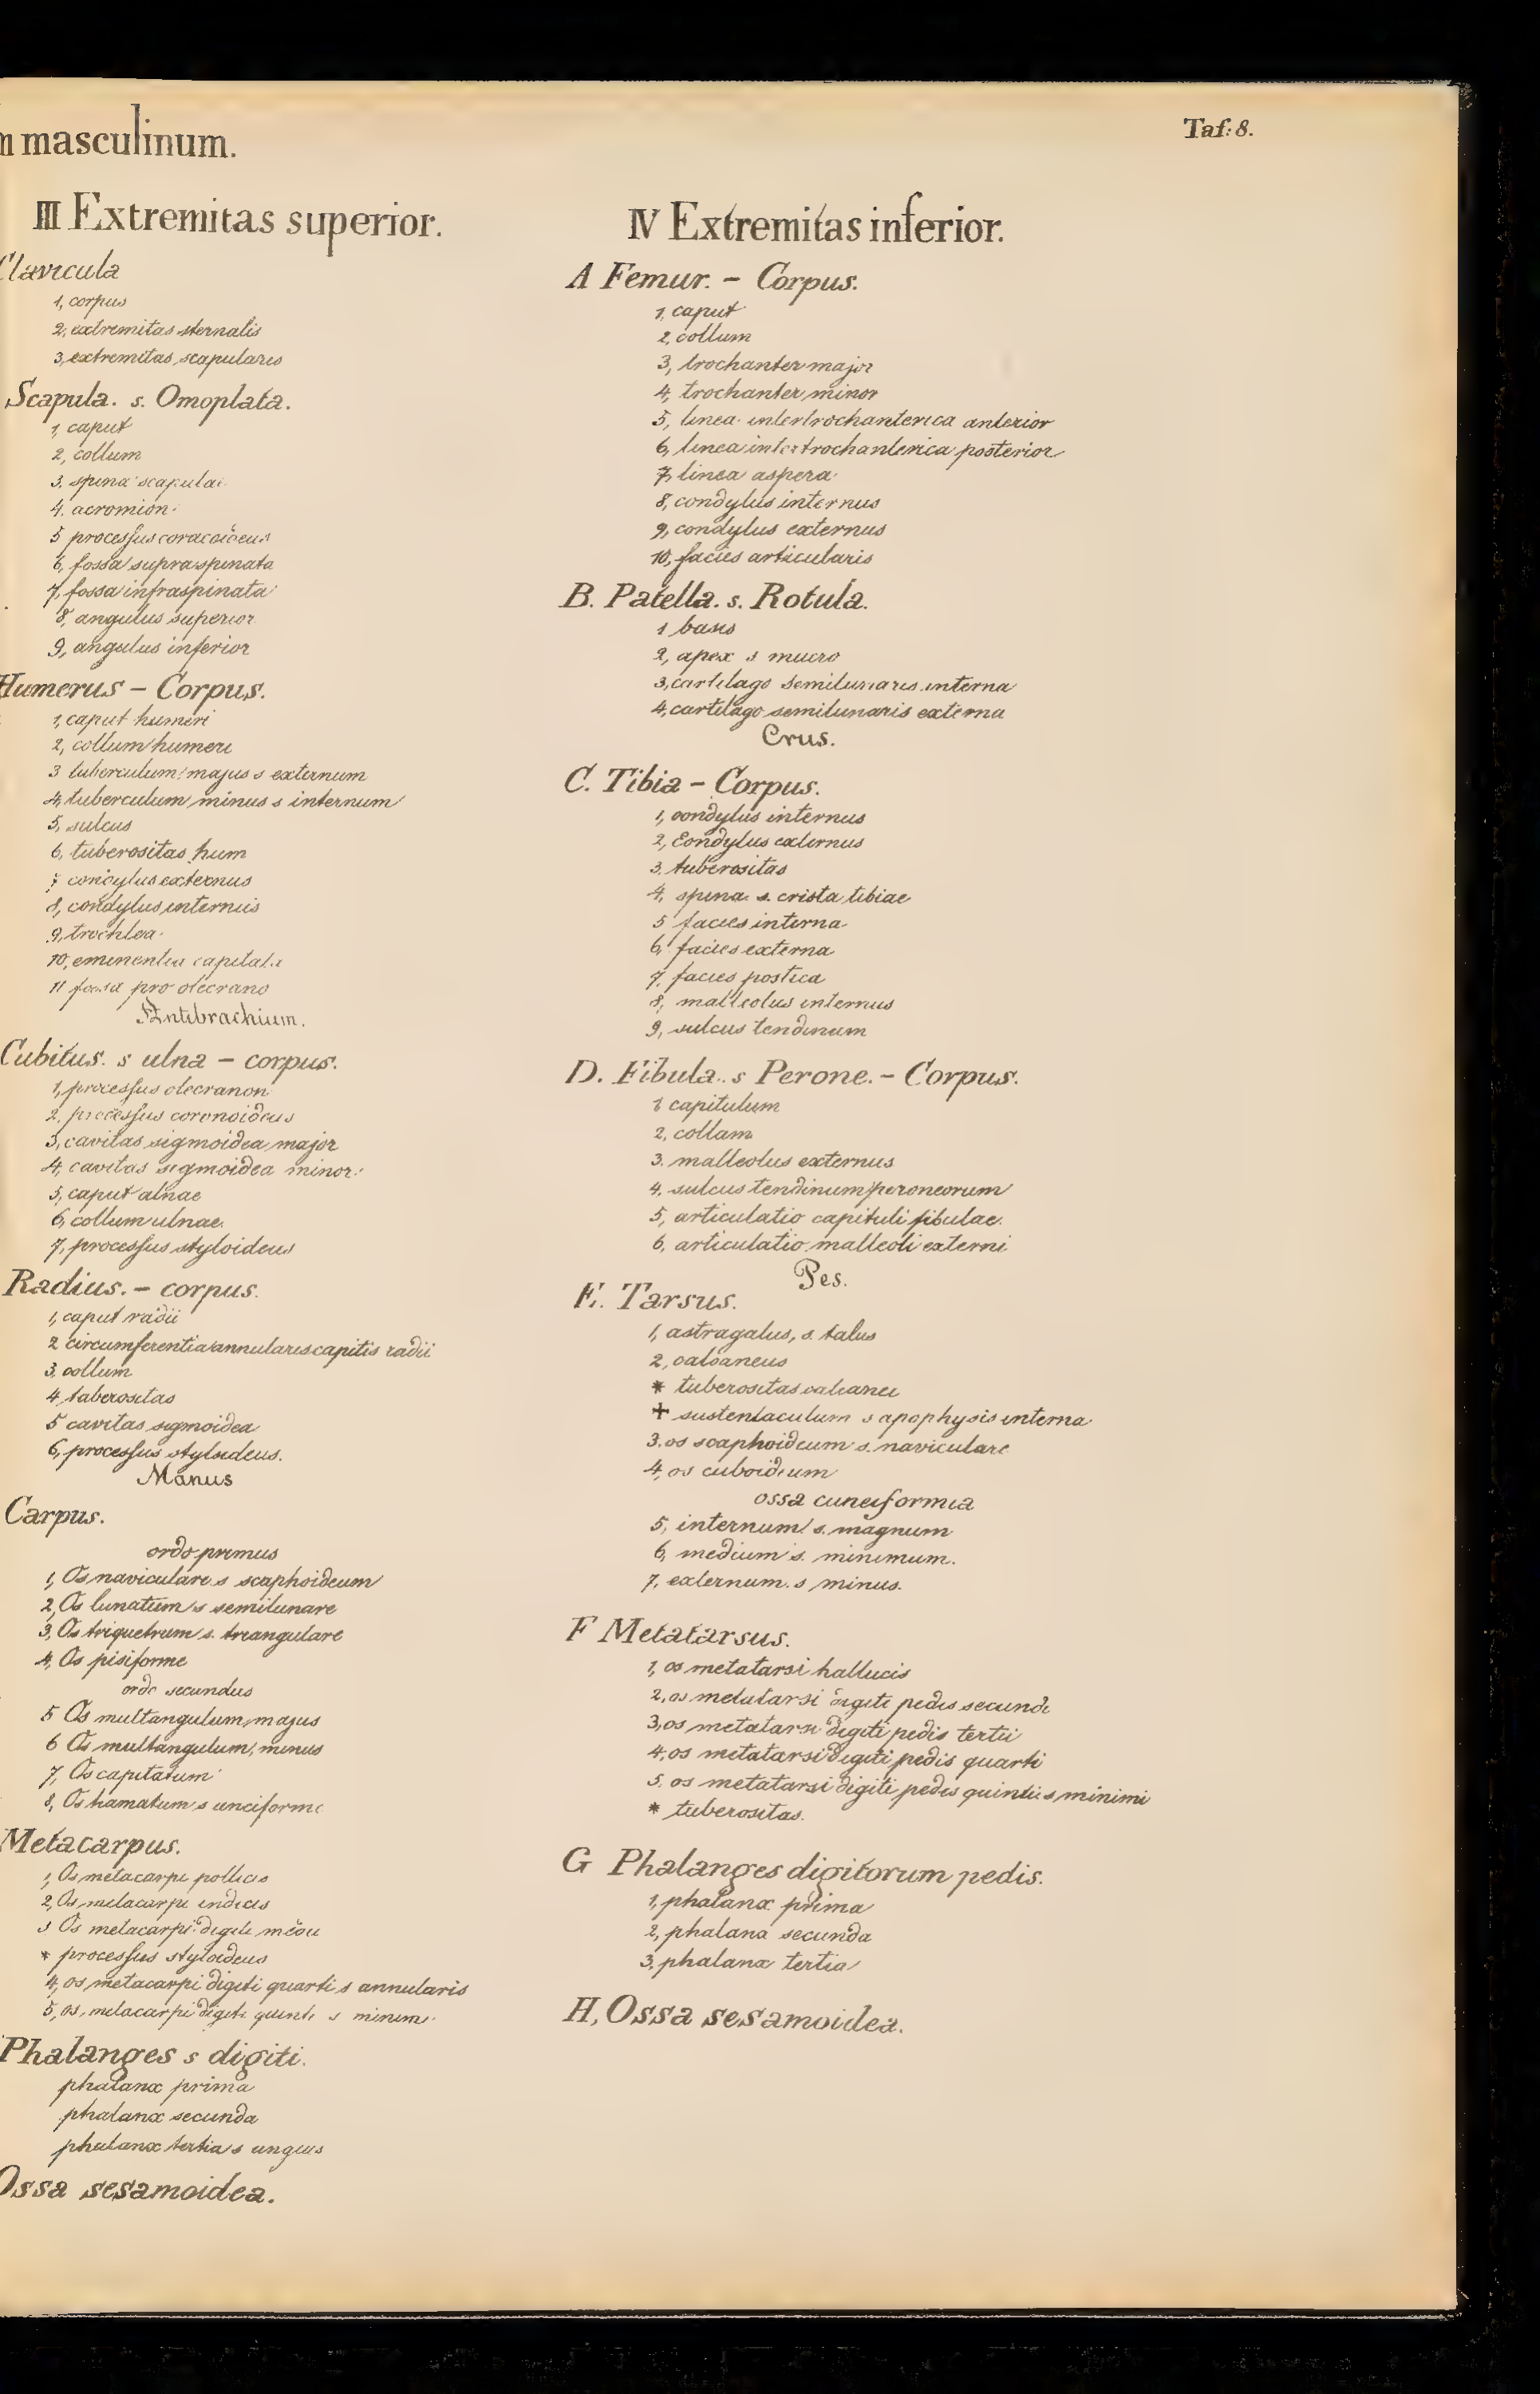 masculinum.
Taf: 8.
III Extremitas superior.
Clavicula
1, corpus
2, extremitas sternalis
3, extremitas scapularis
Scapula. s. Omoplata.
1, caput
2, collum
3. spina scapulae
4. acromion
5 processus coracoideus
6, fossa supraspinata
7, fossa infraspinata
8, angulus superior
9, angulus inferior
Humerus – Corpus.
1, caput humeri
2, collum humeri
3 tuberculum majus s externum
4, tuberculum minus s internum
5, sulcus
6, tuberositas hum
7 condylus externus
8, condylus internus
9, trochlea
10, eminentia capitata
11 fossa pro olecrano
Antibrachium.
Cubitus. s ulna – corpus.
1, processus olecranon
2. processus coronoideus
3, cavitas sigmoidea major
4, cavitas sigmoidea minor
5, caput ulnae
6, collum ulnae.
7, processus styloideus
Radius. – corpus.
1, caput radii
2 circumferentia annularis capitis radii
3, collum
4, tuberositas
5 cavitas sigmoidea
6, processus styloideus.
Manus
Carpus.
ordo primus
1, Os naviculare s scaphoideum
2, Os lunatum s semilunare
3, Os triquetrum s. triangulare
4, Os pisiforme
ordo secundus
5 Os multangulum majus
6 Os multangulum minus
7, Os capitatum
8, Os hamatum s unciforme
Metacarpus.
1, Os metacarpi pollicis
2, Os metacarpi indicis
3 Os metacarpi digiti medii
* processus styloideus
4, os metacarpi digiti quarti s annularis
5, os metacarpi digiti quinti s minimi
Phalanges s digiti.
phalanx prima
phalanx secunda
phalanx tertia s unguis
Ossa sesamoidea.
IV Extremitas inferior.
A Femur. – Corpus.
1, caput
2, collum
3, trochanter major
4, trochanter minor
5, linea intertrochanterica anterior
6, linea intertrochanterica posterior
7, linea aspera
8, condylus internus
9, condylus externus
10, facies articularis
B. Patella. s. Rotula.
1 basis
2, apex s mucro
3, cartilago semilunaris interna
4, cartilago semilunaris externa
Crus.
C. Tibia – Corpus.
1, condylus internus
2, Condylus externus
3. tuberositas
4. spina s. crista tibiae
5 facies interna
6, facies externa
7. facies postica
8, malleolus internus
9, sulcus tendinum
D. Fibula. s Perone. – Corpus.
1 capitulum
2, collum
3. malleolus externus
4. sulcus tendinum peroneorum
5, articulatio capituli fibulae.
6, articulatio malleoli externi
Pes.
E. Tarsus.
1, astragalus, s. talus
2, calcaneus
* tuberositas calcanei
+ sustentaculum s apophysis interna
3. os scaphoideum s. naviculare
4, os cuboideum
ossa cuneiformia
5, internum s. magnum
6, medium s. minimum.
7, externum. s minus.
F Metatarsus.
1, os metatarsi hallucis
2, os metatarsi digiti pedis secundi
3, os metatarsi digiti pedis tertii
4, os metatarsi digiti pedis quarti
5. os metatarsi digiti pedis quinti s minimi
* tuberositas.
G Phalanges digitorum pedis.
1, phalanx prima
2, phalanx secunda
3, phalanx tertia
H, Ossa sesamoidea.